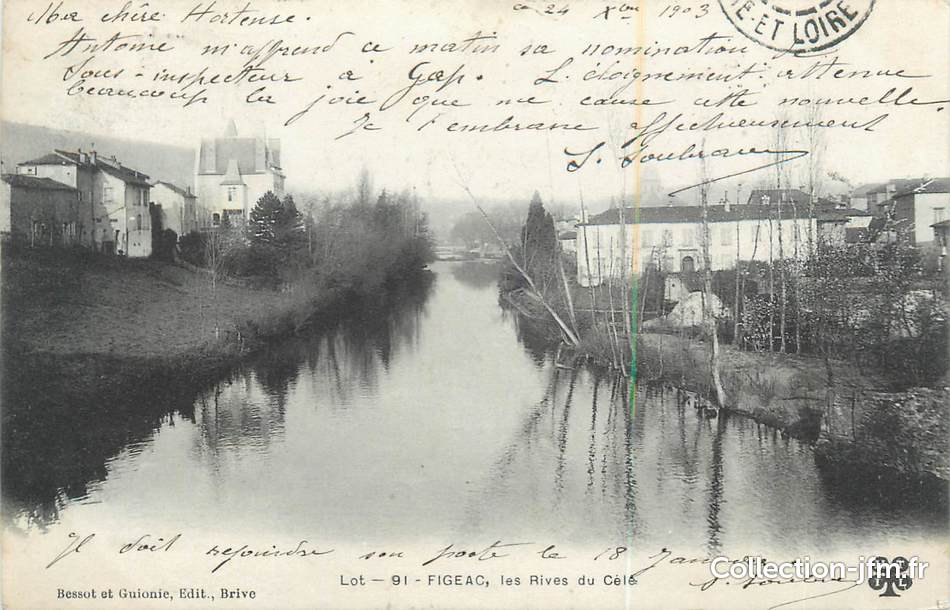 Ma chère Hortense.
ce 24 Xbre 1903
NE-ET-LOIRE
Antoine m'apprend ce matin sa nomination
Sous-inspecteur à Gap. L'éloignement atténue
beaucoup la joie que me cause cette nouvelle.
Je t'embrasse affectueusement
Il doit rejoindre son poste le 18 Janvier
Lot - 91 - FIGEAC, les Rives du Célé
Bessot et Guionie, Edit., Brive
Collection-jfm.fr